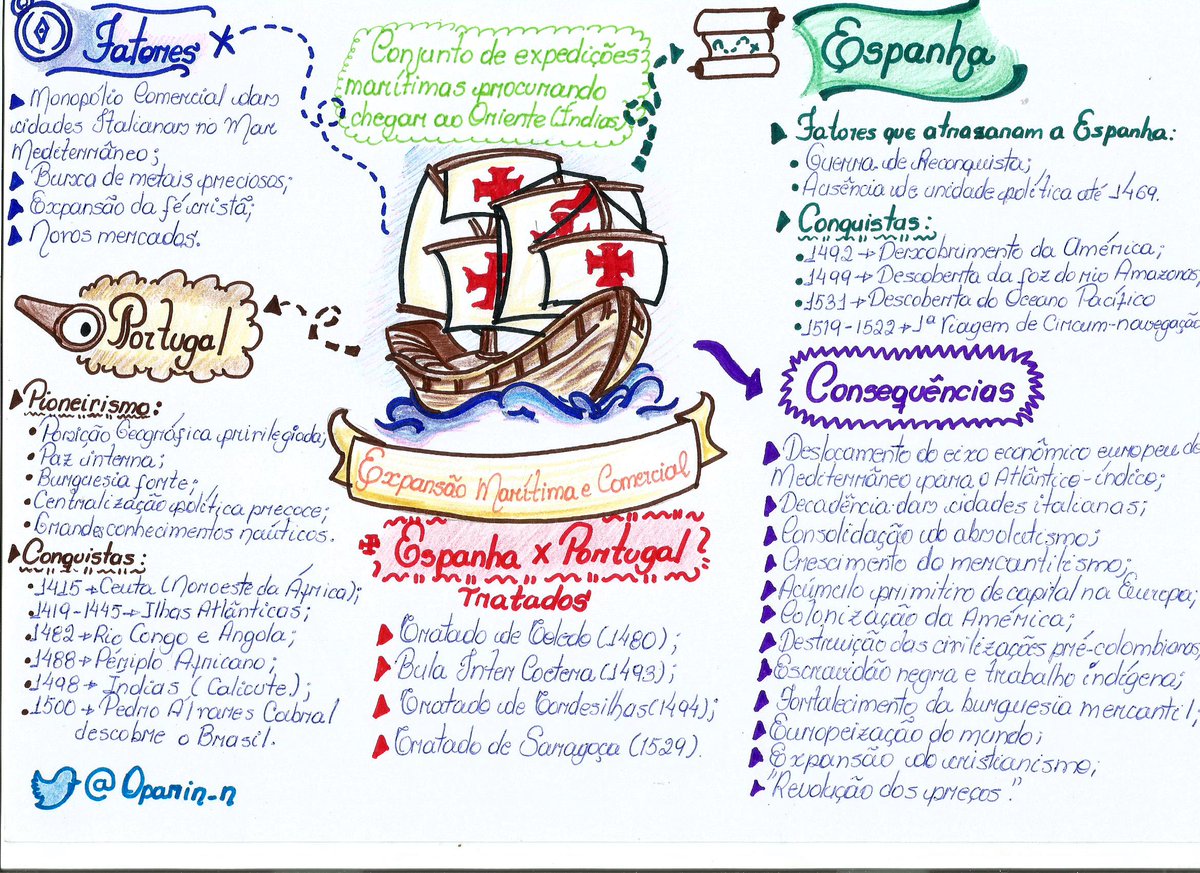 Fatores
Monopólio Comercial das
cidades Italianas no Mar
Mediterrâneo;
Busca de metais preciosos;
Expansão da fé cristã;
Novos mercados.
Conjunto de expedições
marítimas procurando
chegar ao Oriente (Índias)
Espanha
Fatores que atrasaram a Espanha:
Guerra de Reconquista;
Ausência de unidade política até 1469.
Conquistas:
1492→Descobrimento da América;
1499→Descoberta da foz do rio Amazonas;
1531→Descoberta do Oceano Pacífico
1519-1522→1ª Viagem de Circum-navegação
Portugal
Pioneirismo:
Posição Geográfica privilegiada;
Paz interna;
Burguesia forte;
Centralização política precoce;
Grandes conhecimentos naúticos.
Conquistas:
1415→Ceuta (Noroeste da África);
1419-1445→Ilhas Atlânticas;
1482→Rio Congo e Angola;
1488→Périplo Africano;
1498→Índias (Calicute);
1500→Pedro Álvares Cabral
descobre o Brasil.
@Oparin_n
Expansão Marítima e Comercial
Espanha x Portugal
Tratados
Tratado de Toledo (1480);
Bula Inter Coetera (1493);
Tratado de Tordesilhas (1494);
Tratado de Saragoça (1529).
Consequências
Deslocamento do eixo econômico europeu do
Mediterrâneo para o Atlântico-índico;
Decadência das cidades italianas;
Consolidação do absolutismo;
Crescimento do mercantilismo;
Acúmulo primitivo de capital na Europa;
Colonização da América;
Destruição das civilizações pré-colombianas;
Escravidão negra e trabalho indígena;
Fortalecimento da burguesia mercantil.
Europeização do mundo;
Expansão do cristianismo;
"Revolução dos preços".